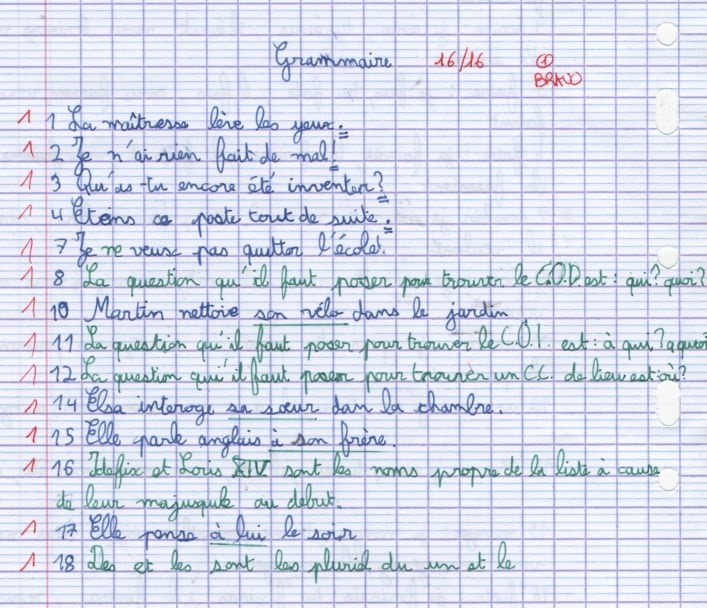 Grammaire 16/16 ①
BRAVO
1 1 La maîtresse lève les yeux.
1 2 Je n'ai rien fait de mal!
1 3 Qu'as-tu encore été inventer?
1 4 Eteins ce poste tout de suite.
1 7 Je ne veux pas quitter l'école!
1 8 La question qu'il faut poser pour trouver le C.O.D. est : qui? quoi?
1 10 Martin nettoie son vélo dans le jardin
1 11 La question qu'il faut poser pour trouver le C.O.I. est : à qui? a quoi
1 12 La question qui'il faut poser pour trouver un C.C. de lieu est : où?
1 14 Elsa interoge sa sœur dan la chambre.
1 15 Elle parle anglais à son frère.
1 16 Idefix et Loris XIV sont les noms propre de la liste à cause
de leur majusqule au début.
1 17 Elle pense à lui le soir
1 18 Des et les sont les pluriel du un et le